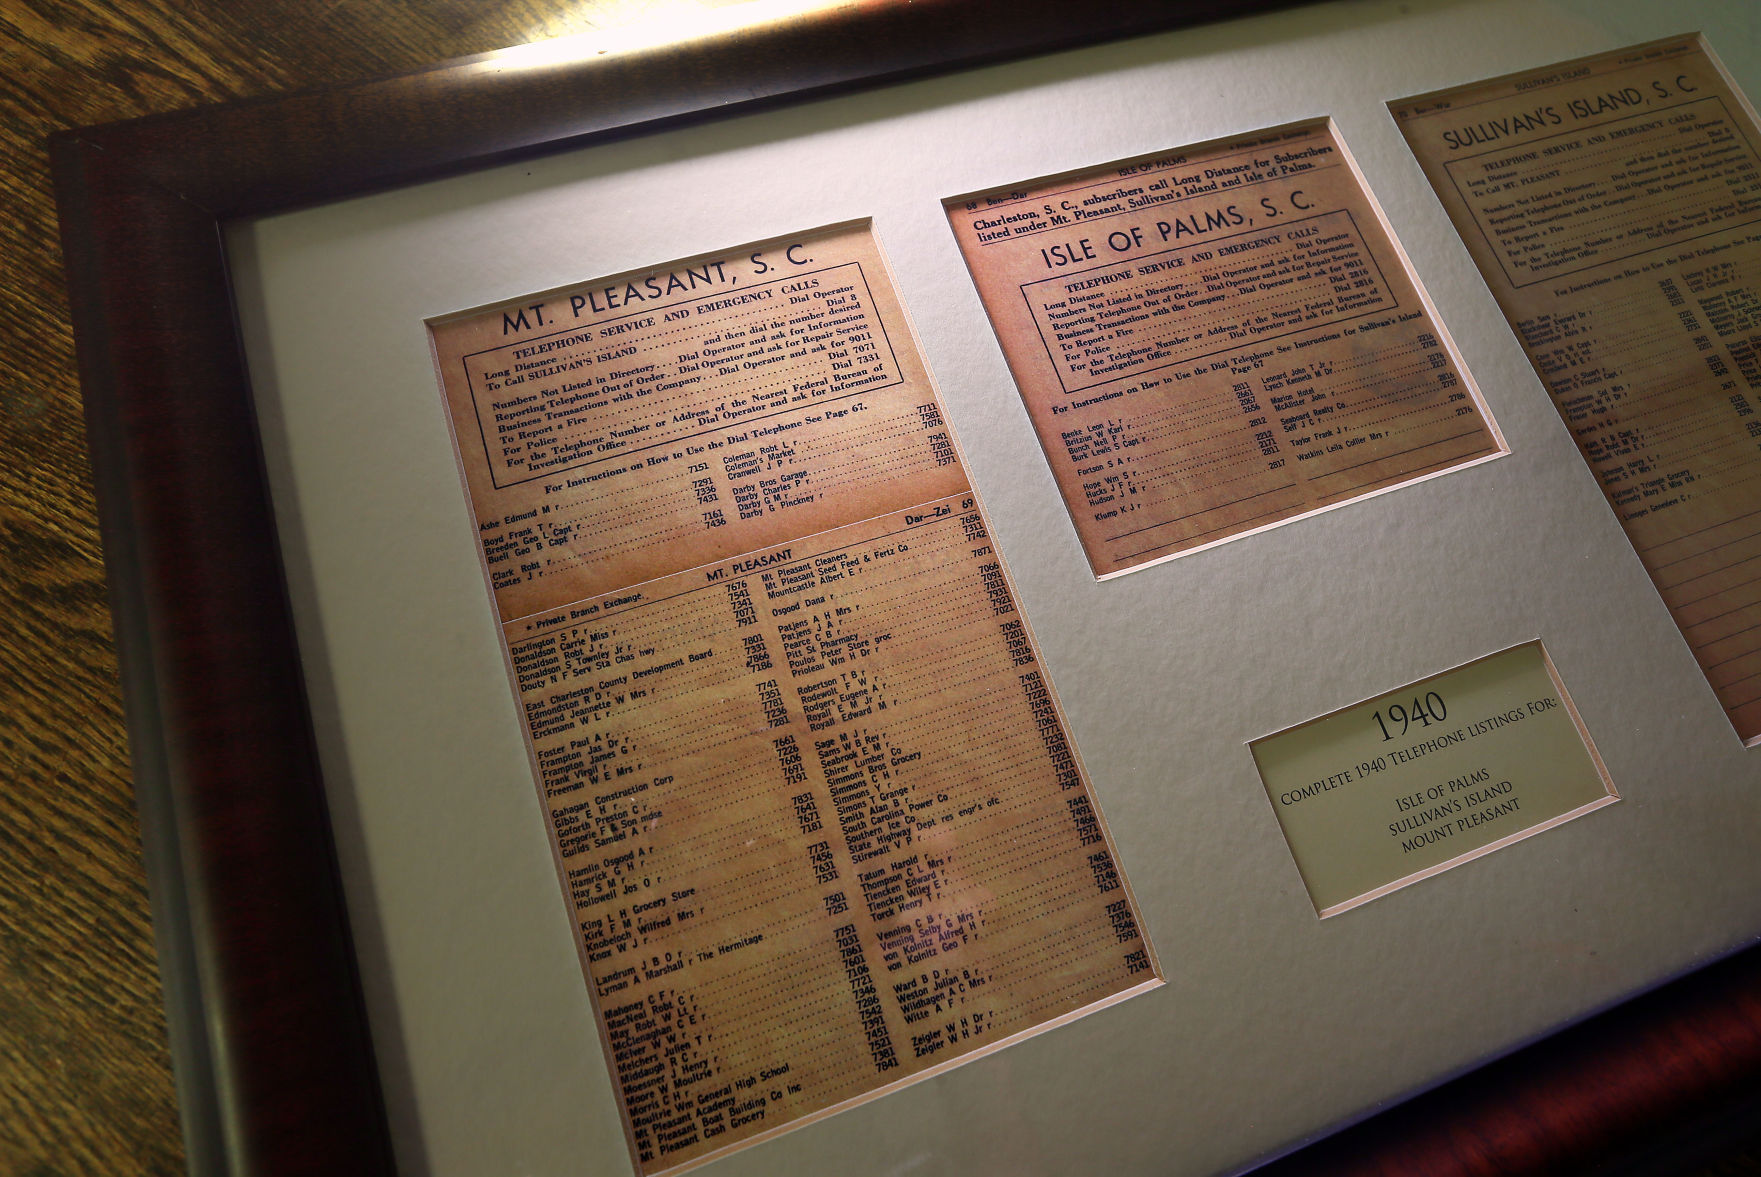 MT. PLEASANT, S. C.
TELEPHONE SERVICE AND EMERGENCY CALLS
Long Distance Dial Operator
To Call SULLIVAN'S ISLAND Dial 8
and then dial the number desired
Numbers Not Listed in Directory Dial Operator and ask for Information
Reporting Telephone Out of Order Dial Operator and ask for Repair Service
Business Transactions with the Company Dial Operator and ask for 9011
To Report a Fire Dial 7071
For Police Dial 7331
For the Telephone Number or Address of the Nearest Federal Bureau of
Investigation Office Dial Operator and ask for Information
For Instructions on How to Use the Dial Telephone See Page 67.
Ashe Edmund M r 7151
Boyd Frank T r 7291
Breeden Geo L Capt r 7336
Buell Geo B Capt r 7431
Clark Robt r 7161
Coates J r 7436
Coleman Robt L r 7711
Coleman's Market 7581
Cranwell J P r 7076
Darby Bros Garage 7941
Darby Charles P r 7281
Darby G M r 7101
Darby G Pinckney r 7371
Dar—Zei 69
MT. PLEASANT
★ Private Branch Exchange.
Darlington S P r 7676
Donaldson Carrie Miss r 7541
Donaldson Robt J r 7341
Donaldson S Townley Jr r 7071
Douty N F Serv Sta Chas hwy 7911
East Charleston County Development Board 7801
Edmondston R D r 7331
Edmund Jeannette W Mrs r 7866
Erckmann W L r 7186
Foster Paul A r 7741
Frampton Jas Dr r 7351
Frampton James G r 7781
Frank Virgil r 7236
Freeman W E Mrs r 7281
Gahagan Construction Corp 7661
Gibbs E H r 7226
Goforth Preston C r 7606
Gregorie F & Son mdse 7691
Guilds Samuel A r 7191
Hamlin Osgood A r 7831
Hamrick G H r 7641
Hay S M r 7671
Hollowell Jos O r 7181
King L H Grocery Store 7731
Kirk F M r 7456
Knobeloch Wilfred Mrs r 7631
Knox W J r 7531
Landrum J B D r 7501
Lyman A Marshall r The Hermitage 7251
Mahoney C F r 7751
MacNeal Robt C r 7031
May Robt W Lt r 7861
McClenaghan C E r 7601
McIver W W r 7106
Melchers Julien T r 7721
Middaugh R C r 7346
Moessner J Henry r 7286
Moore W Moultrie r 7542
Morris C H r 7391
Moultrie Wm General High School 7451
Mt Pleasant Academy 7521
Mt Pleasant Boat Building Co Inc 7381
Mt Pleasant Cash Grocery 7841
Mt Pleasant Cleaners 7656
Mt Pleasant Seed Feed & Fertz Co 7311
Mountcastle Albert E r 7742
Osgood Dana r 7871
Patjens A H Mrs r 7066
Patjens J A r 7091
Pearce C B r 7811
Pitt St Pharmacy 7931
Poulos Peter Store groc 7921
Prioleau Wm H Dr r 7021
Robertson T B r 7062
Rodewolt F W r 7201
Rodgers Eugene A r 7067
Royall E M Jr r 7816
Royall Edward M r 7836
Sage M J r 7401
Sams W B Rev r 7121
Seabrook E M r 7222
Shirer Lumber Co 7696
Simmons Bros Grocery 7241
Simmons C H r 7061
Simmons Y r 7771
Simons T Grange r 7232
Smith Alan B r 7081
South Carolina Power Co 7221
Southern Ice Co 7471
State Highway Dept res engr's ofc 7301
Stirewalt V P r 7547
Tatum Harold r 7441
Thompson C L Mrs r 7491
Tiencken Edward r 7466
Tiencken Wiley E r 7571
Torck Henry T r 7716
Venning C B r 7461
Venning Selby G Mrs r 7536
von Kolnitz Alfred H r 7146
von Kolnitz Geo F r 7611
Ward B D r 7227
Weston Julian B r 7376
Wildhagen A C Mrs r 7546
Witte A F r 7591
Zeigler W H Dr r 7821
Zeigler W H Jr r 7141
68 Ben—Dar ISLE OF PALMS ★ Private Branch Exchange.
Charleston, S. C., subscribers call Long Distance for Subscribers
listed under Mt. Pleasant, Sullivan's Island and Isle of Palms.
ISLE OF PALMS, S. C.
TELEPHONE SERVICE AND EMERGENCY CALLS
Long Distance Dial Operator
Numbers Not Listed in Directory Dial Operator and ask for Information
Reporting Telephone Out of Order Dial Operator and ask for Repair Service
Business Transactions with the Company Dial Operator and ask for 9011
To Report a Fire Dial 2816
For Police Dial 2816
For the Telephone Number or Address of the Nearest Federal Bureau of
Investigation Office Dial Operator and ask for Information
For Instructions on How to Use the Dial Telephone See Instructions for Sullivan's Island
Page 67
Benke Leon L r 2811
Britzius W Karl r 2661
Bunch Nell P r 2067
Burk Lewis S Capt r 2656
Fortson S A r 2812
Hope Wm S r 2212
Hucks J F r 2171
Hudson J M r 2811
Klump K J r 2817
Leonard John T Jr 2216
Lynch Kenneth M Dr 2782
Marion Hotel 2176
McAlister John r 2217
Seaboard Realty Co 2816
Self J C r 2787
Taylor Frank J r 2786
Watkins Leila Collier Mrs r 2176
SULLIVAN'S ISLAND
SULLIVAN'S ISLAND, S. C.
TELEPHONE SERVICE AND EMERGENCY CALLS
Long Distance Dial Operator
To Call MT. PLEASANT Dial 8
and then dial the number desired
Numbers Not Listed in Directory Dial Operator and ask for Information
Reporting Telephone Out of Order Dial Operator and ask for Repair Service
Business Transactions with the Company Dial Operator and ask for 9011
To Report a Fire
For Police
For the Telephone Number or Address of the Nearest Federal
Investigation Office Dial Operator and ask for
For Instructions on How to Use the Dial Telephone See
1940
COMPLETE 1940 TELEPHONE LISTINGS FOR:
ISLE OF PALMS
SULLIVAN'S ISLAND
MOUNT PLEASANT